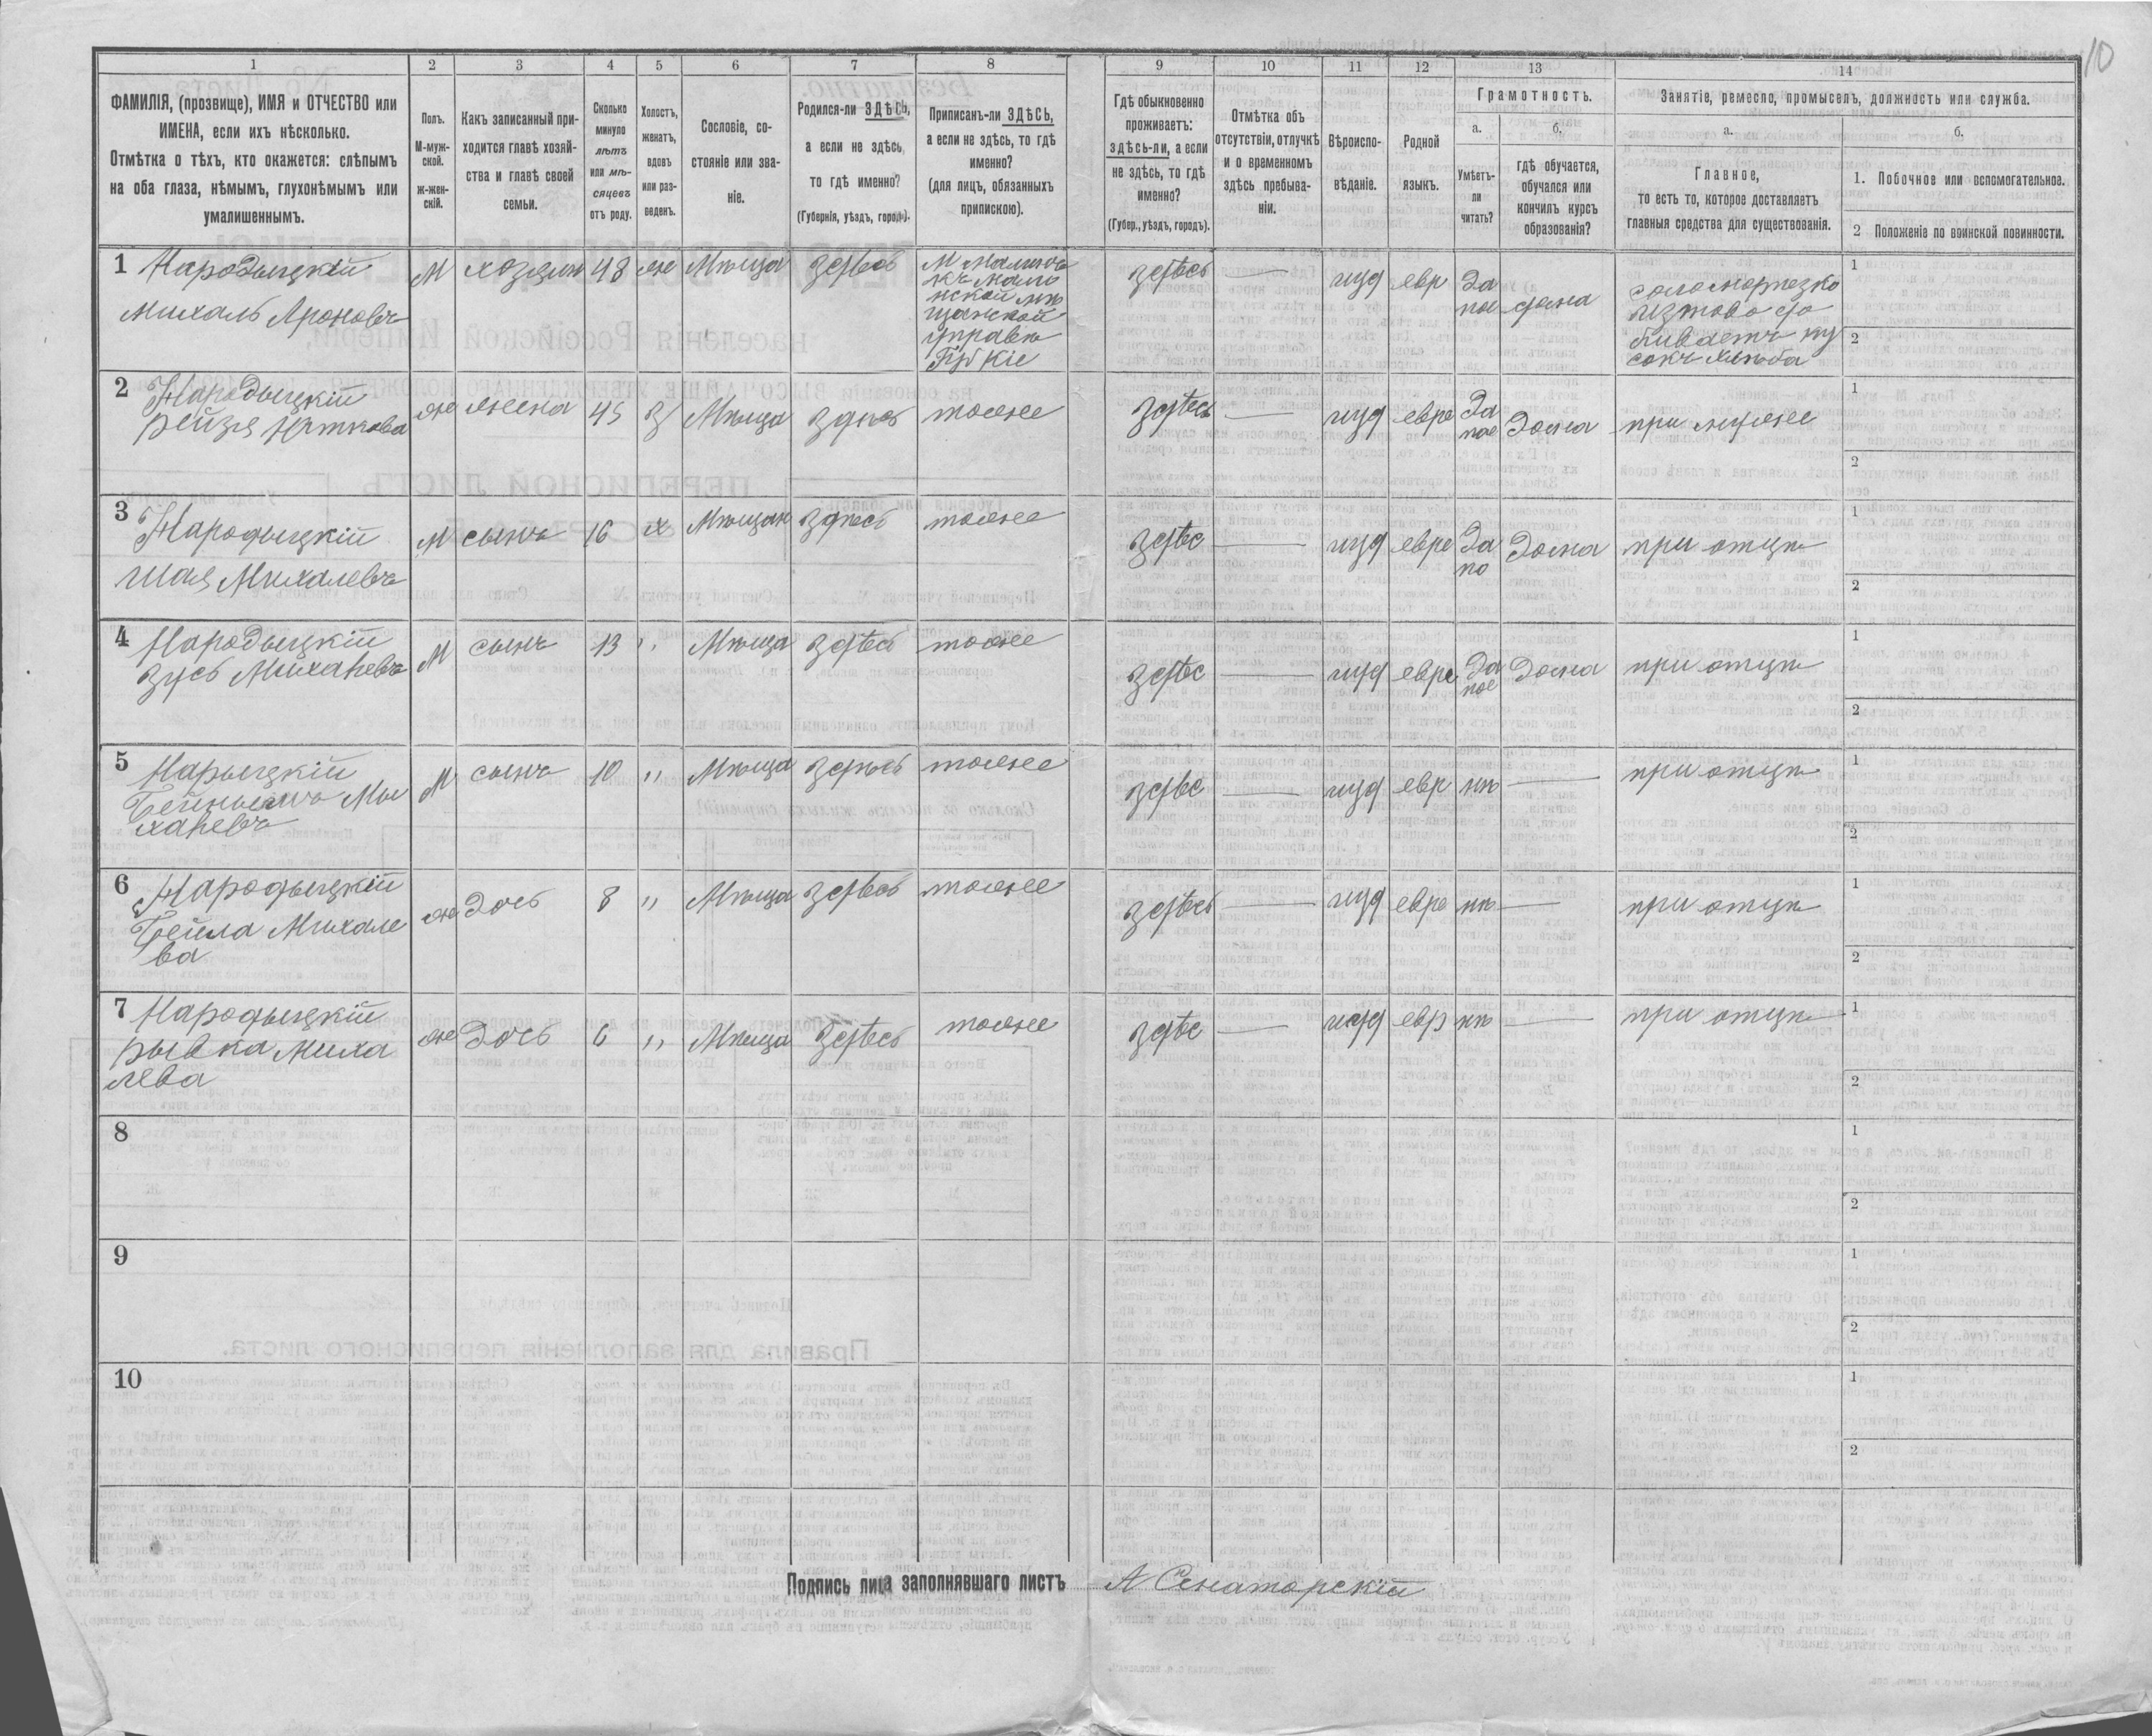 10
1 2 3 4 5 6 7 8 9 10 11 12 13 14
ФАМИЛІЯ, (прозвище), ИМЯ и ОТЧЕСТВО или
ИМЕНА, если ихъ нѣсколько.
Отмѣтка о тѣхъ, кто окажется: слѣпымъ
на оба глаза, нѣмымъ, глухонѣмымъ или
умалишеннымъ.
Полъ.
М-муж-
ской.
ж-жен-
скій.
Какъ записанный при-
ходится главѣ хозяй-
ства и главѣ своей
семьи.
Сколько
минуло
лѣтъ
или мѣ-
сяцевъ
отъ роду.
Холостъ,
женатъ,
вдовъ
или раз-
веденъ.
Сословіе, со-
стояніе или зва-
ніе.
Родился-ли ЗДѢСЬ,
а если не здѣсь,
то гдѣ именно?
(Губернія, уѣздъ, городъ).
Приписанъ-ли ЗДѢСЬ,
а если не здѣсь, то гдѣ
именно?
(для лицъ, обязанныхъ
припискою).
Гдѣ обыкновенно
проживаетъ:
здѣсь-ли, а если
не здѣсь, то гдѣ
именно?
(Губер., уѣздъ, городъ).
Отмѣтка объ
отсутствіи, отлучкѣ
и о временномъ
здѣсь пребыва-
ніи.
Вѣроиспо-
вѣданіе.
Родной
языкъ.
Грамотность.
а.
Умѣетъ-
ли
читать?
б.
гдѣ обучается,
обучался или
кончилъ курсъ
образованія?
Занятіе, ремесло, промыселъ, должность или служба.
а.
Главное,
то есть то, которое доставляетъ
главныя средства для существованія.
б.
1. Побочное или вспомогательное.
2 Положеніе по воинской повинности.
1 Народыцкій
Михаль Ароновъ
М хозяин 48 же Мѣща здѣсь
щанской
управѣ
здѣсь — іуд евр Да дома
2 Народыцкій
Рейзя
же жена 45 З Мѣща здѣсь тоже здѣсь — іуд евре Да Дома при муже
3 Народыцкій
Шая Михалевъ
М сынъ 16 х Мѣщан здѣсь тоже здѣс — іуд евре Да по Дома при отцѣ
4 Народыцкій
Зусь Михалевъ
М сынъ 13 " Мѣща здѣсь тоже здѣс — іуд евре Да Дома при отцѣ
5 Нарыцкій
Ми
халевъ
М сынъ 10 " Мѣща здѣсь тоже здѣс — іуд евр нѣ — при отцѣ
6 Народыцкій
Бейла Михале
ва
же Дочь 8 " Мѣща здѣсь тоже здѣсь — іуд евре нѣ — при отцѣ
7 Народыцкій
Рывка Миха
лева
же Дочь 6 " Мѣща здѣсь тоже здѣс — іуд евр нѣ — при отцѣ
8
9
10
Подпись лица заполнявшаго листъ А Сенаторскій